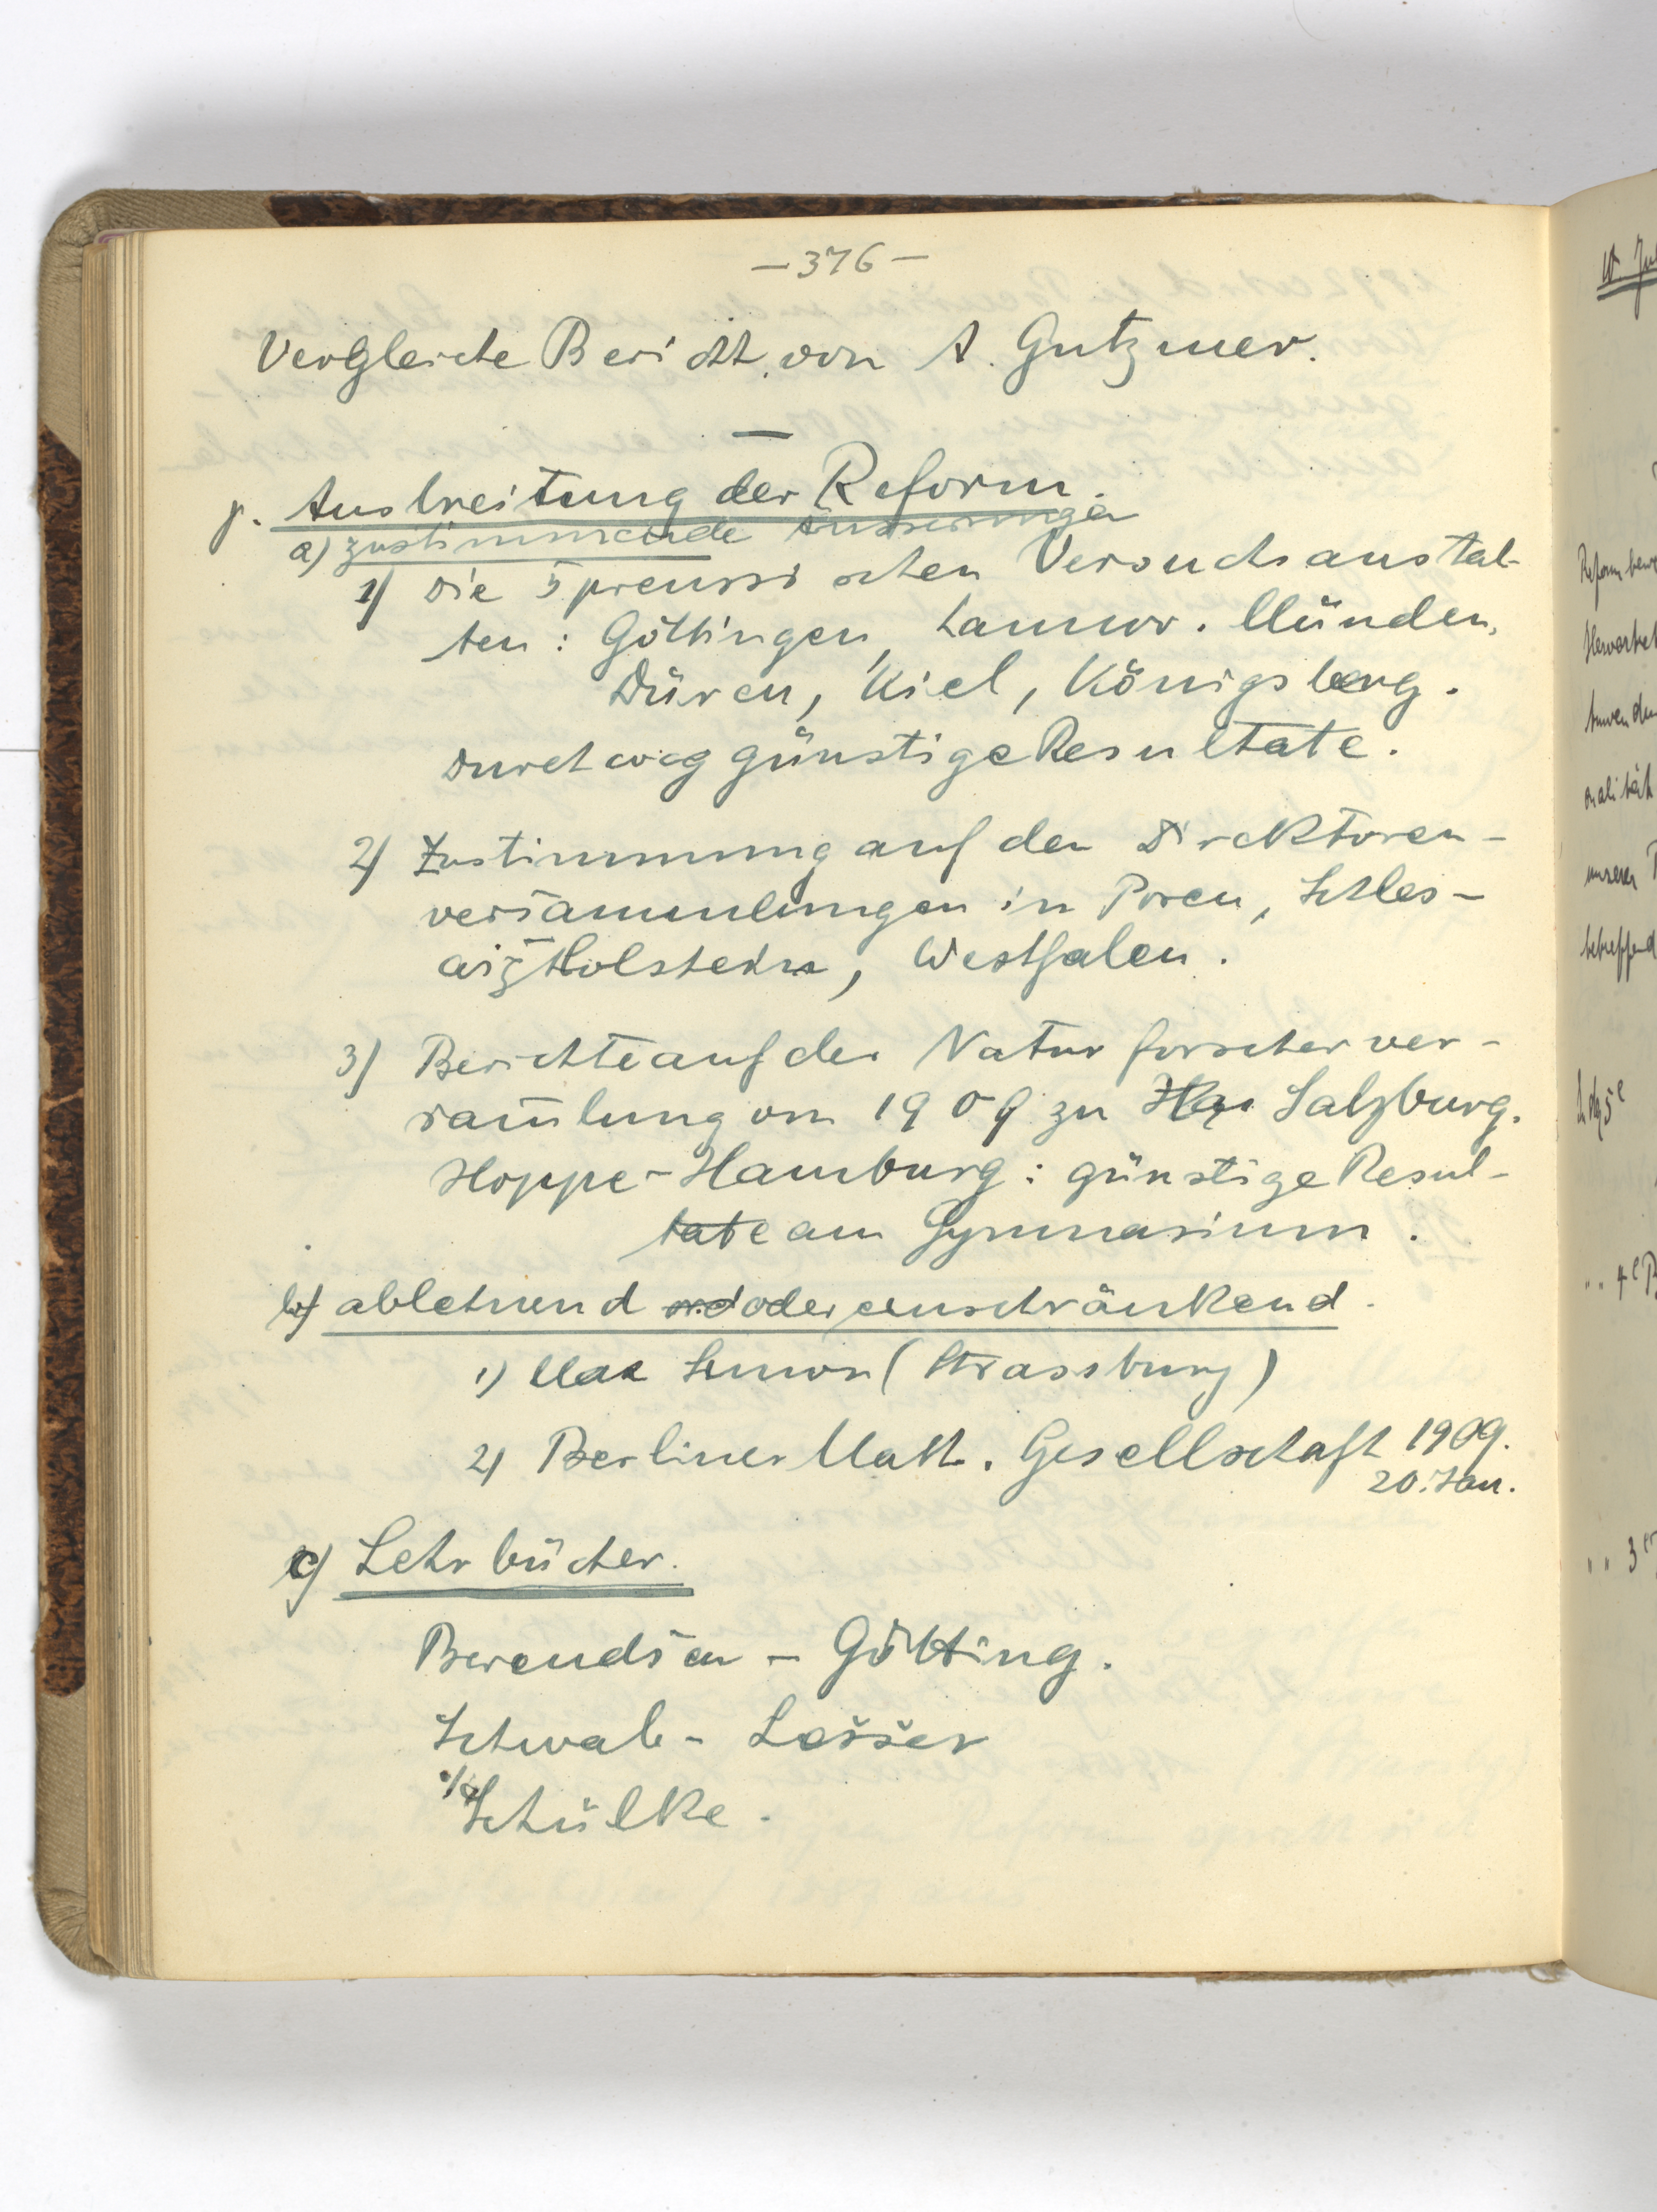 — 376 —
Vergleiche Bericht von A. Gutzmer.
—
γ. Ausbreitung der Reform.
a) zustimmende Äusserungen
1) Die 5 preussischen Versuchsanstal-
ten: Göttingen, Hannov. Münden,
Düren, Kiel, Königsberg.
Durchweg günstige Resultate.
2) Zustimmung auf den Direktoren-
versammlungen in Posen, Schles-
wig-Holstein, Westfalen.
3) Berichte auf der Naturforscherver-
sam̄lung von 1909 zu Salzburg.
Hoppe-Hamburg: günstige Resul-
tate am Gymnasium.
b) ablehnend oder einschränkend.
1) Max Simon (Strassburg)
2) Berliner Math. Gesellschaft 1909.
20. Jan.
c) Lehrbücher.
Berendsen - Götting.
Schwab - Lesser
Schülke.
W. Jul
Reformbewe
Hervortret
Anwenden
onalität
unserer P
betreffend
" " 4e B
" " 3er